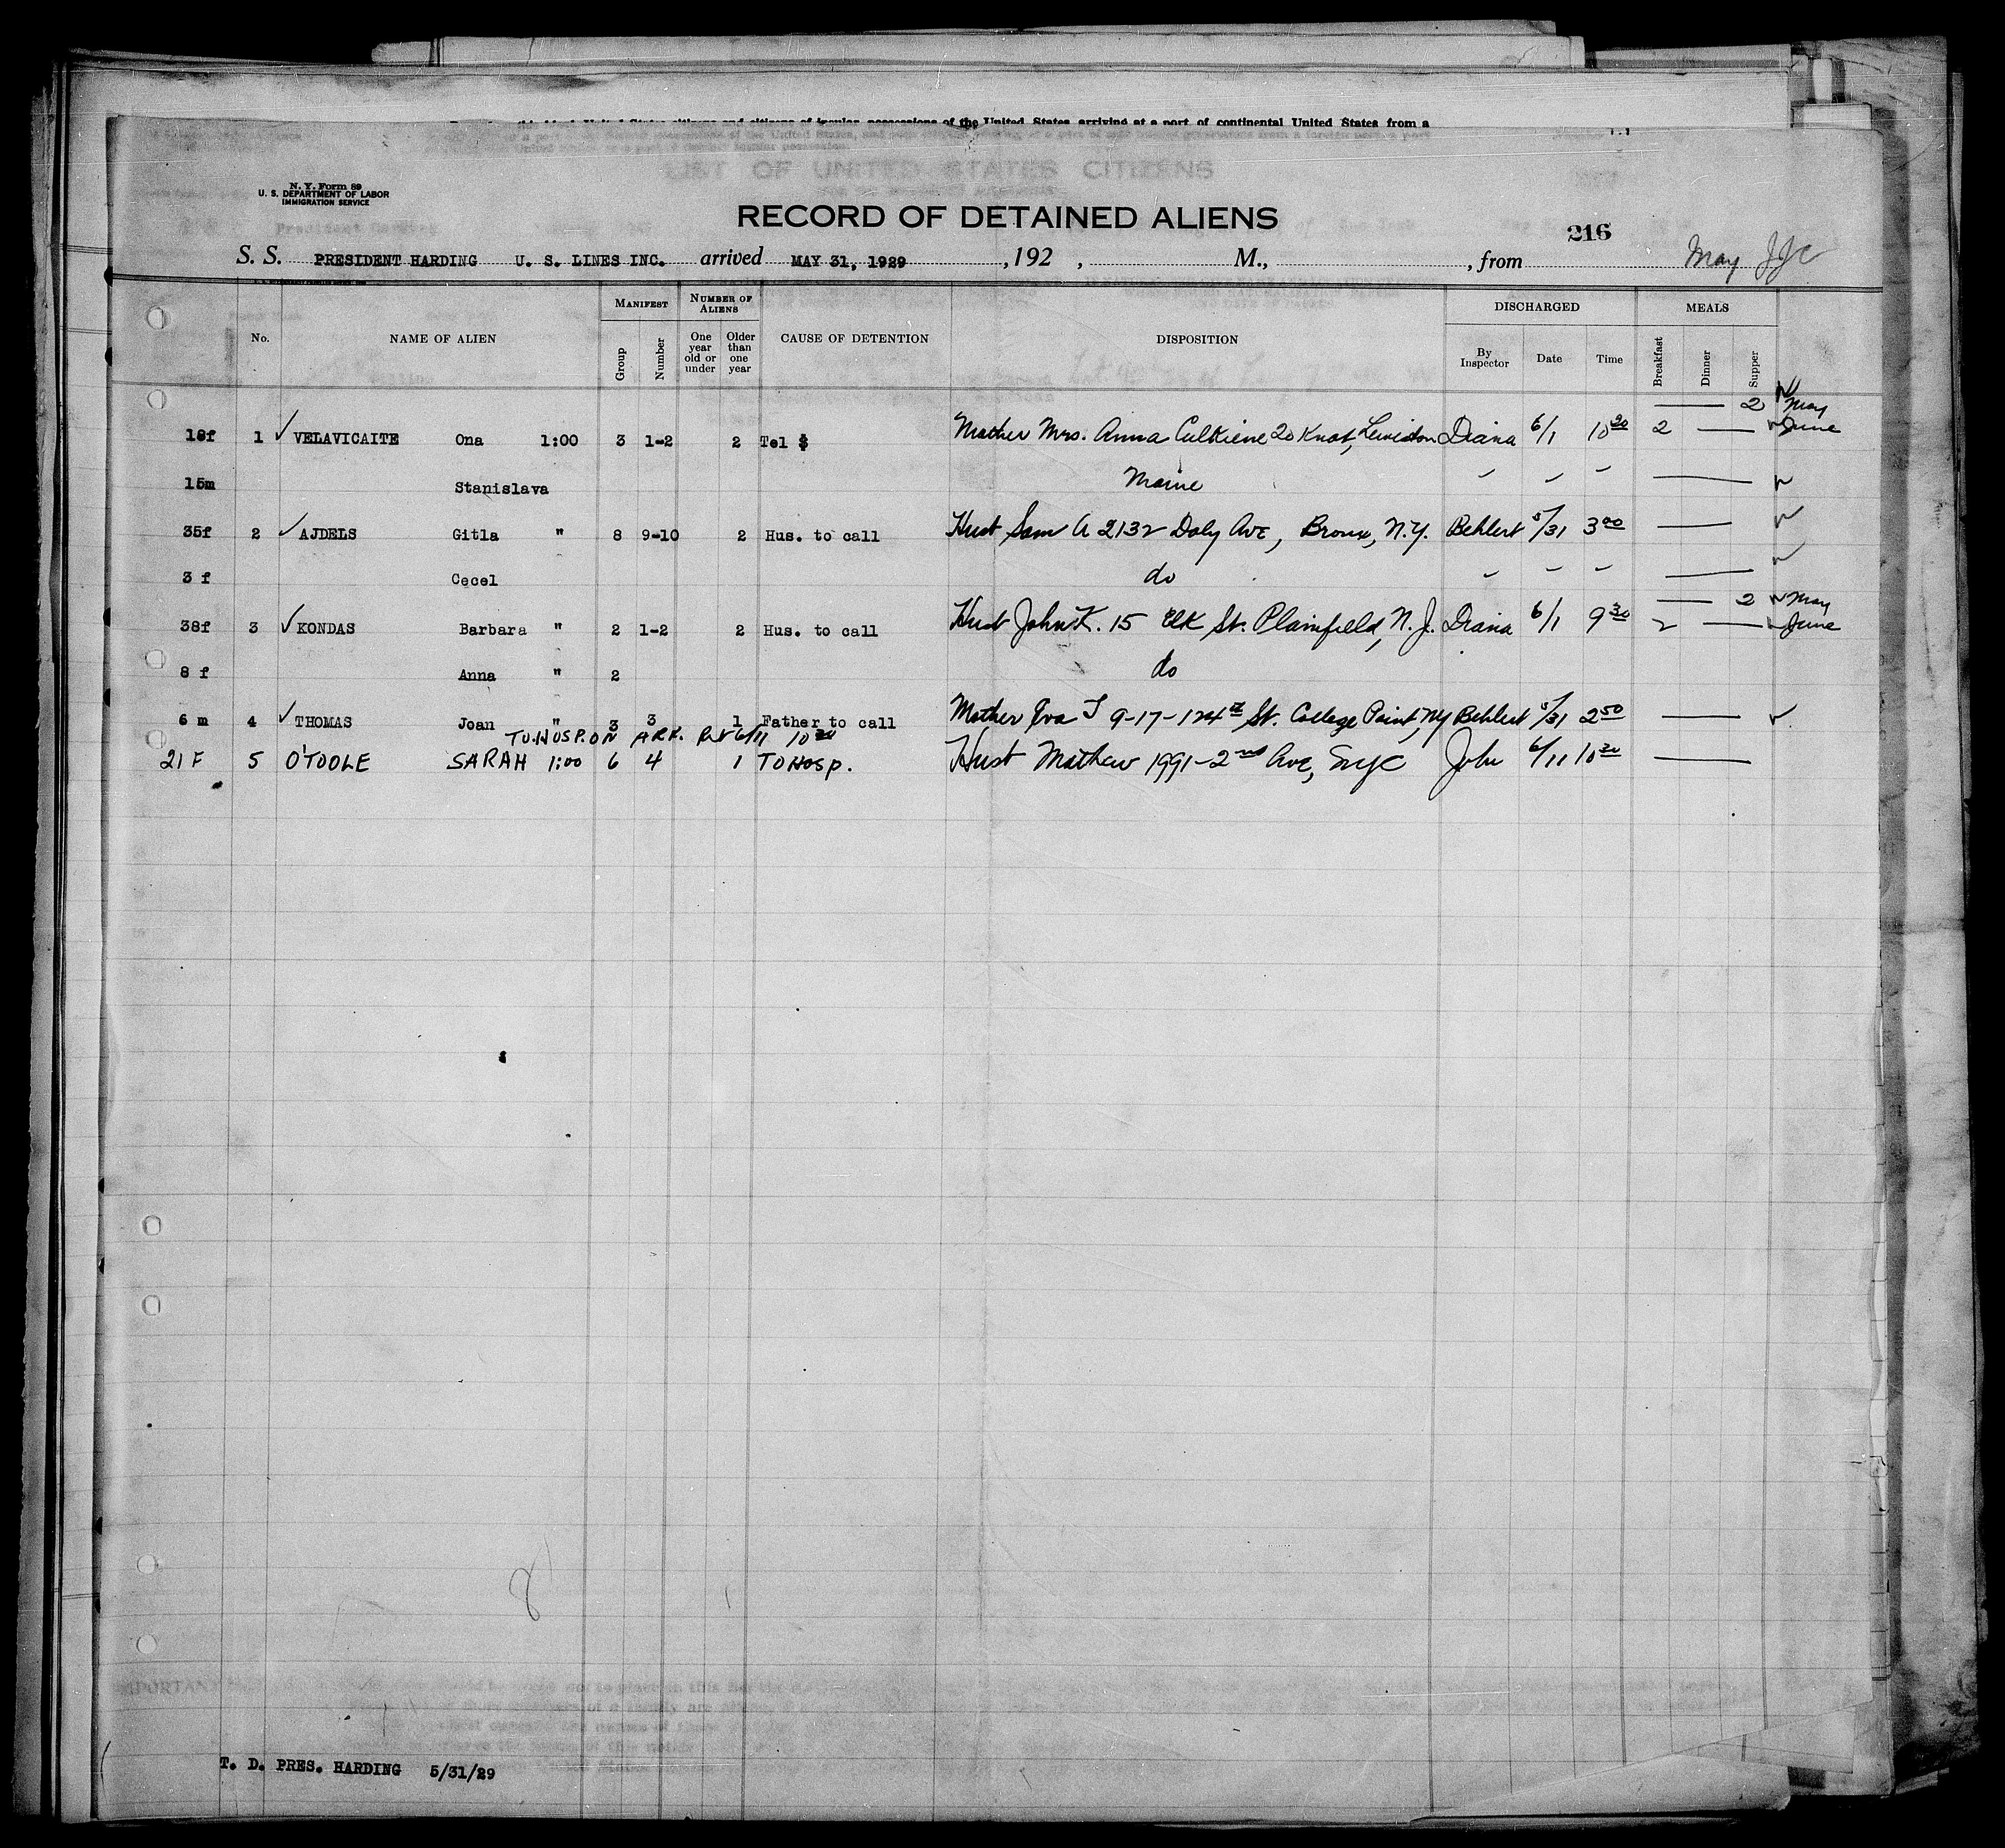 this list United States citizens and citizens of insular possessions of the United States arriving at a port of continental United States from a
LIST OF UNITED STATES CITIZENS
N. Y. Form 89
U. S. DEPARTMENT OF LABOR
IMMIGRATION SERVICE
RECORD OF DETAINED ALIENS
216
S. S. PRESIDENT HARDING U. S. LINES INC. arrived MAY 31, 1929 , 192 , M., , from May JJC
MANIFEST NUMBER OF ALIENS DISCHARGED MEALS
No. NAME OF ALIEN Group Number One year old or under Older than one year CAUSE OF DETENTION DISPOSITION By Inspector Date Time Breakfast Dinner Supper
2 May
18f 1 ✓ VELAVICAITE Ona 1:00 3 1-2 2 Tel $ Mother Mrs. Anna Culkiene 20 Knox, Lewiston Diana 6/1 10 20 2 — June
15m Stanislava Maine
35f 2 ✓ AJDELS Gitla " 8 9-10 2 Hus. to call Husb Sam A 2132 Daly Ave, Bronx, N.Y. Behlert 5/31 3 00 —
3 f Cecel do
— 2 May
38f 3 ✓ KONDAS Barbara " 2 1-2 2 Hus. to call Husb John K. 15 Elk St. Plainfield, N. J. Diana 6/1 9 30 2 — June
8 f Anna " 2 do
6 m 4 ✓ THOMAS Joan " 3 3 1 Father to call Mother Eva T 9-17-124th St. College Point, NY Behlert 5/31 2 50 —
TO HOSP. ON ARR. Ret 6/11 10 20
21 F 5 O'TOOLE SARAH 1:00 6 4 1 TO HOSP. Husb Mathew 1991-2nd Ave, NYC John 6/11 10 30 —
8
T. D. PRES. HARDING 5/31/29